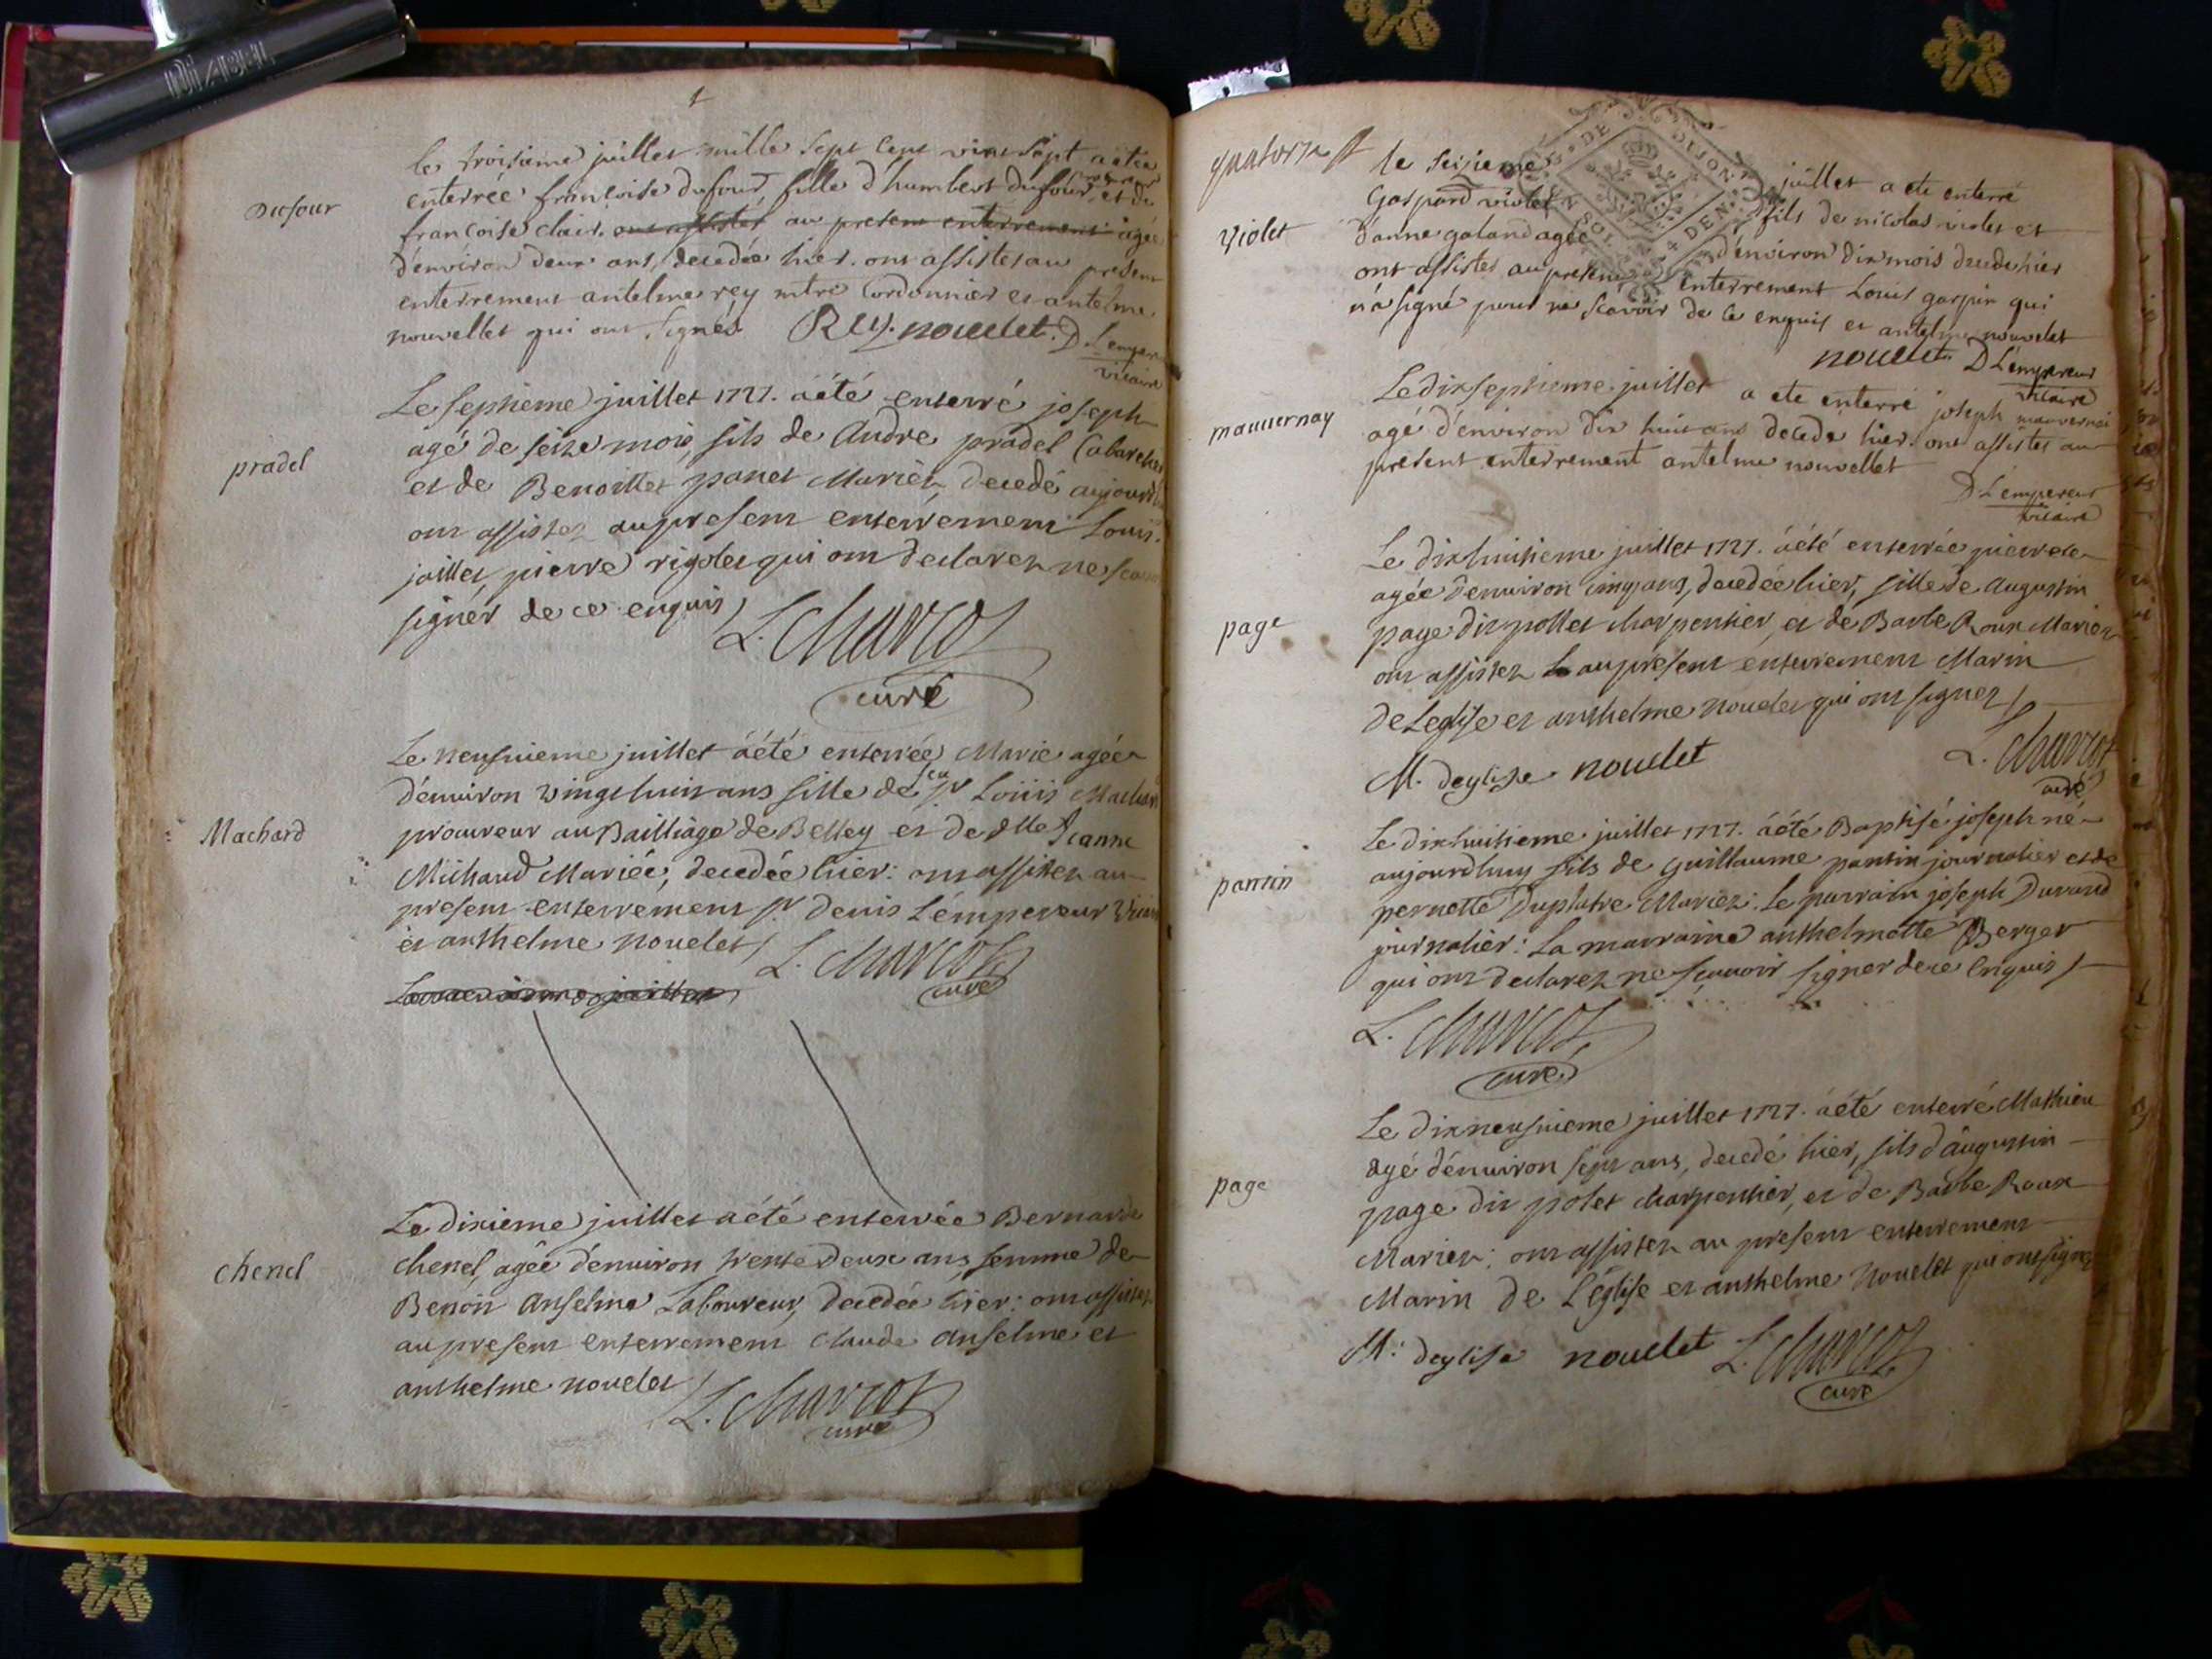 DIABEL
Dufour
le troisieme juillet mille sept cent vint sept a etée
enterrée francoise dufour fille d'humbert dufour et de
francoise clair. ont assistés au present enterrement agée
d'environ deux ans, decedée hier. ont assistes au present
enterrement antelme rey mtre Cordonnier et antelme
nouvellet qui ont signés. Rey. nouelet. D Lemper
vicaire
pradel
Le septieme juillet 1727. áété enterré joseph
agé de seize mois, fils de Andre pradel Cabaretier
et de Benoitte panet Mariéz, decedé aujourd'h
ont assistez au present enterrement Louis
jaillet, pierre rigolet qui ont declarez ne scau
signér de ce enquis /
L. Charcot
curé
Machard
Le neufuieme juillet áété enterrée Marie agée
d'enuiron vingt huit ans fille de feu Sr Loüis Machar
procureur au Bailliage de Belley et de dlle Jeanne
Michaud Mariéé, decedée hier: ont assistez au
present enterrement Sr. denis Lémpereur Vicai
et anthelme nouelet / L. Charcot
curé
chenel
Le dixieme juillet áété enterrée Bernarde
chenel, agée d'enuiron trente deux ans femme de
Benoit Anselme Laboureur, decedée hier: ont assistez
au present enterrement claude anselme et
anthelme nouelet /
L. Charcot
curé
quatorze
DE DIJON
SOL 4 DEN.
violet
le seizieme juillet a ete enterré
Gaspard violet fils de nicolas violet et
d'anne galand agée d'environ dix mois decede hier
ont assistes au present enterrement Louis gaspin qui
n'a signé pour ne scavoir de ce enquis et antelme nouvelet
nouelet. D Lémpereur
vicaire
mauvernay
Le dix septieme juillet a ete enterré joseph mauvernai
agé d'environ dix huit ans decede hier. ont assistes au
present enterrement antelme nouvellet
D Lémpereur
vicaire
page
Le dixhuitieme juillet 1727. áété enterrée pierrete
agée d'enuiron cinq ans, decedée hier, fille de Augustin
page dit pollet charpentier, et de Barbe Roux Mariez
ont assistez au présent énterrement Marin
de Leglise et anthelme nouelet qui ont signez /
M. deglise nouelet
L. Charcot
curé
pantin
Le dixhuitieme juillet 1727. áété Baptisé joseph né
aujourdhuy fils de guillaume pantin journalier et de
pernette Duplatre Mariez: Le parrain joseph Durand
journalier: La marraine anthelmette Berger
qui ont declarez ne scauoir signer de ce Enquis /
L. Charcot
curé
page
Le dixneufuieme juillet 1727. áété enterré Mathieu
agé d'énuiron sept ans, decedé hier, fils d'augustin
page dit polet charpentier, et de Barbe Roux
Mariez: ont assistez au present enterrement
Marin de L'église et anthelme Nouelet qui ont signez
M. deglise nouelet L. Charcot
curé